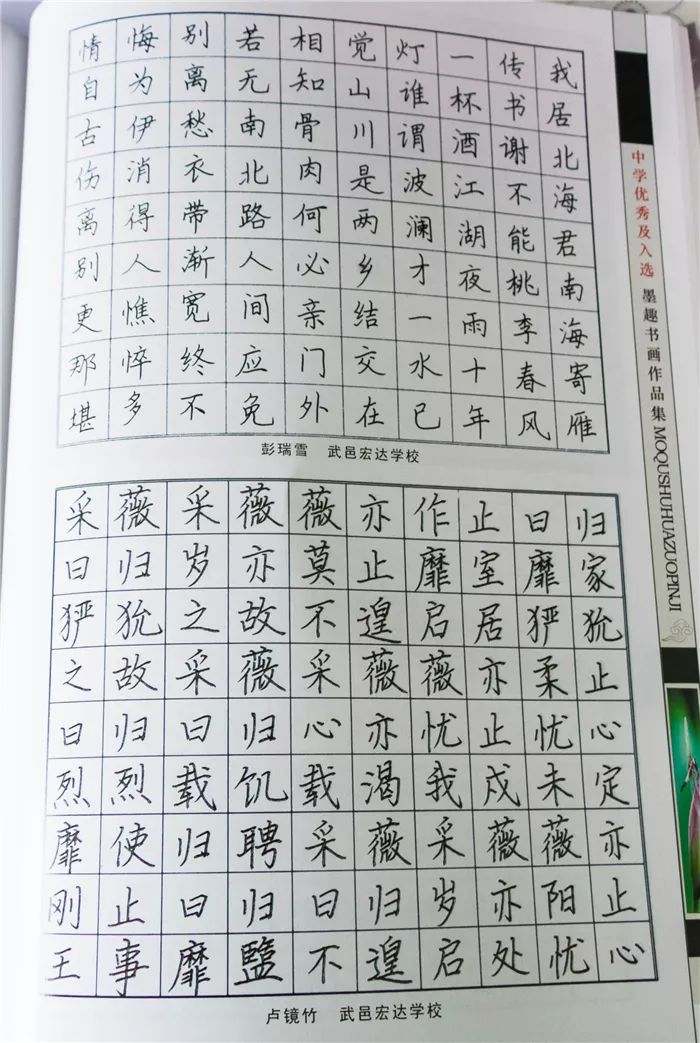 我居北海君南海寄雁
传书谢不能桃李春风
一杯酒江湖夜雨十年
灯谁谓波澜才一水已
觉山川是两乡结交在
相知骨肉何必亲门外
若无南北路人间应免
别离愁衣带渐宽终不
悔为伊消得人憔悴多
情自古伤离别更那堪
彭瑞雪 武邑宏达学校
采薇采薇薇亦作止曰归
曰归岁亦莫止靡室靡家
𤞤狁之故不遑启居𤞤狁
之故采薇采薇薇亦柔止
曰归曰归心亦忧止忧心
烈烈载饥载渴我戍未定
靡使归聘采薇采薇薇亦
刚止曰归曰归岁亦阳止
王事靡盬不遑启处忧心
卢镜竹 武邑宏达学校
中学优秀及入选 墨趣书画作品集 MOQUSHUHUAZUOPINJI